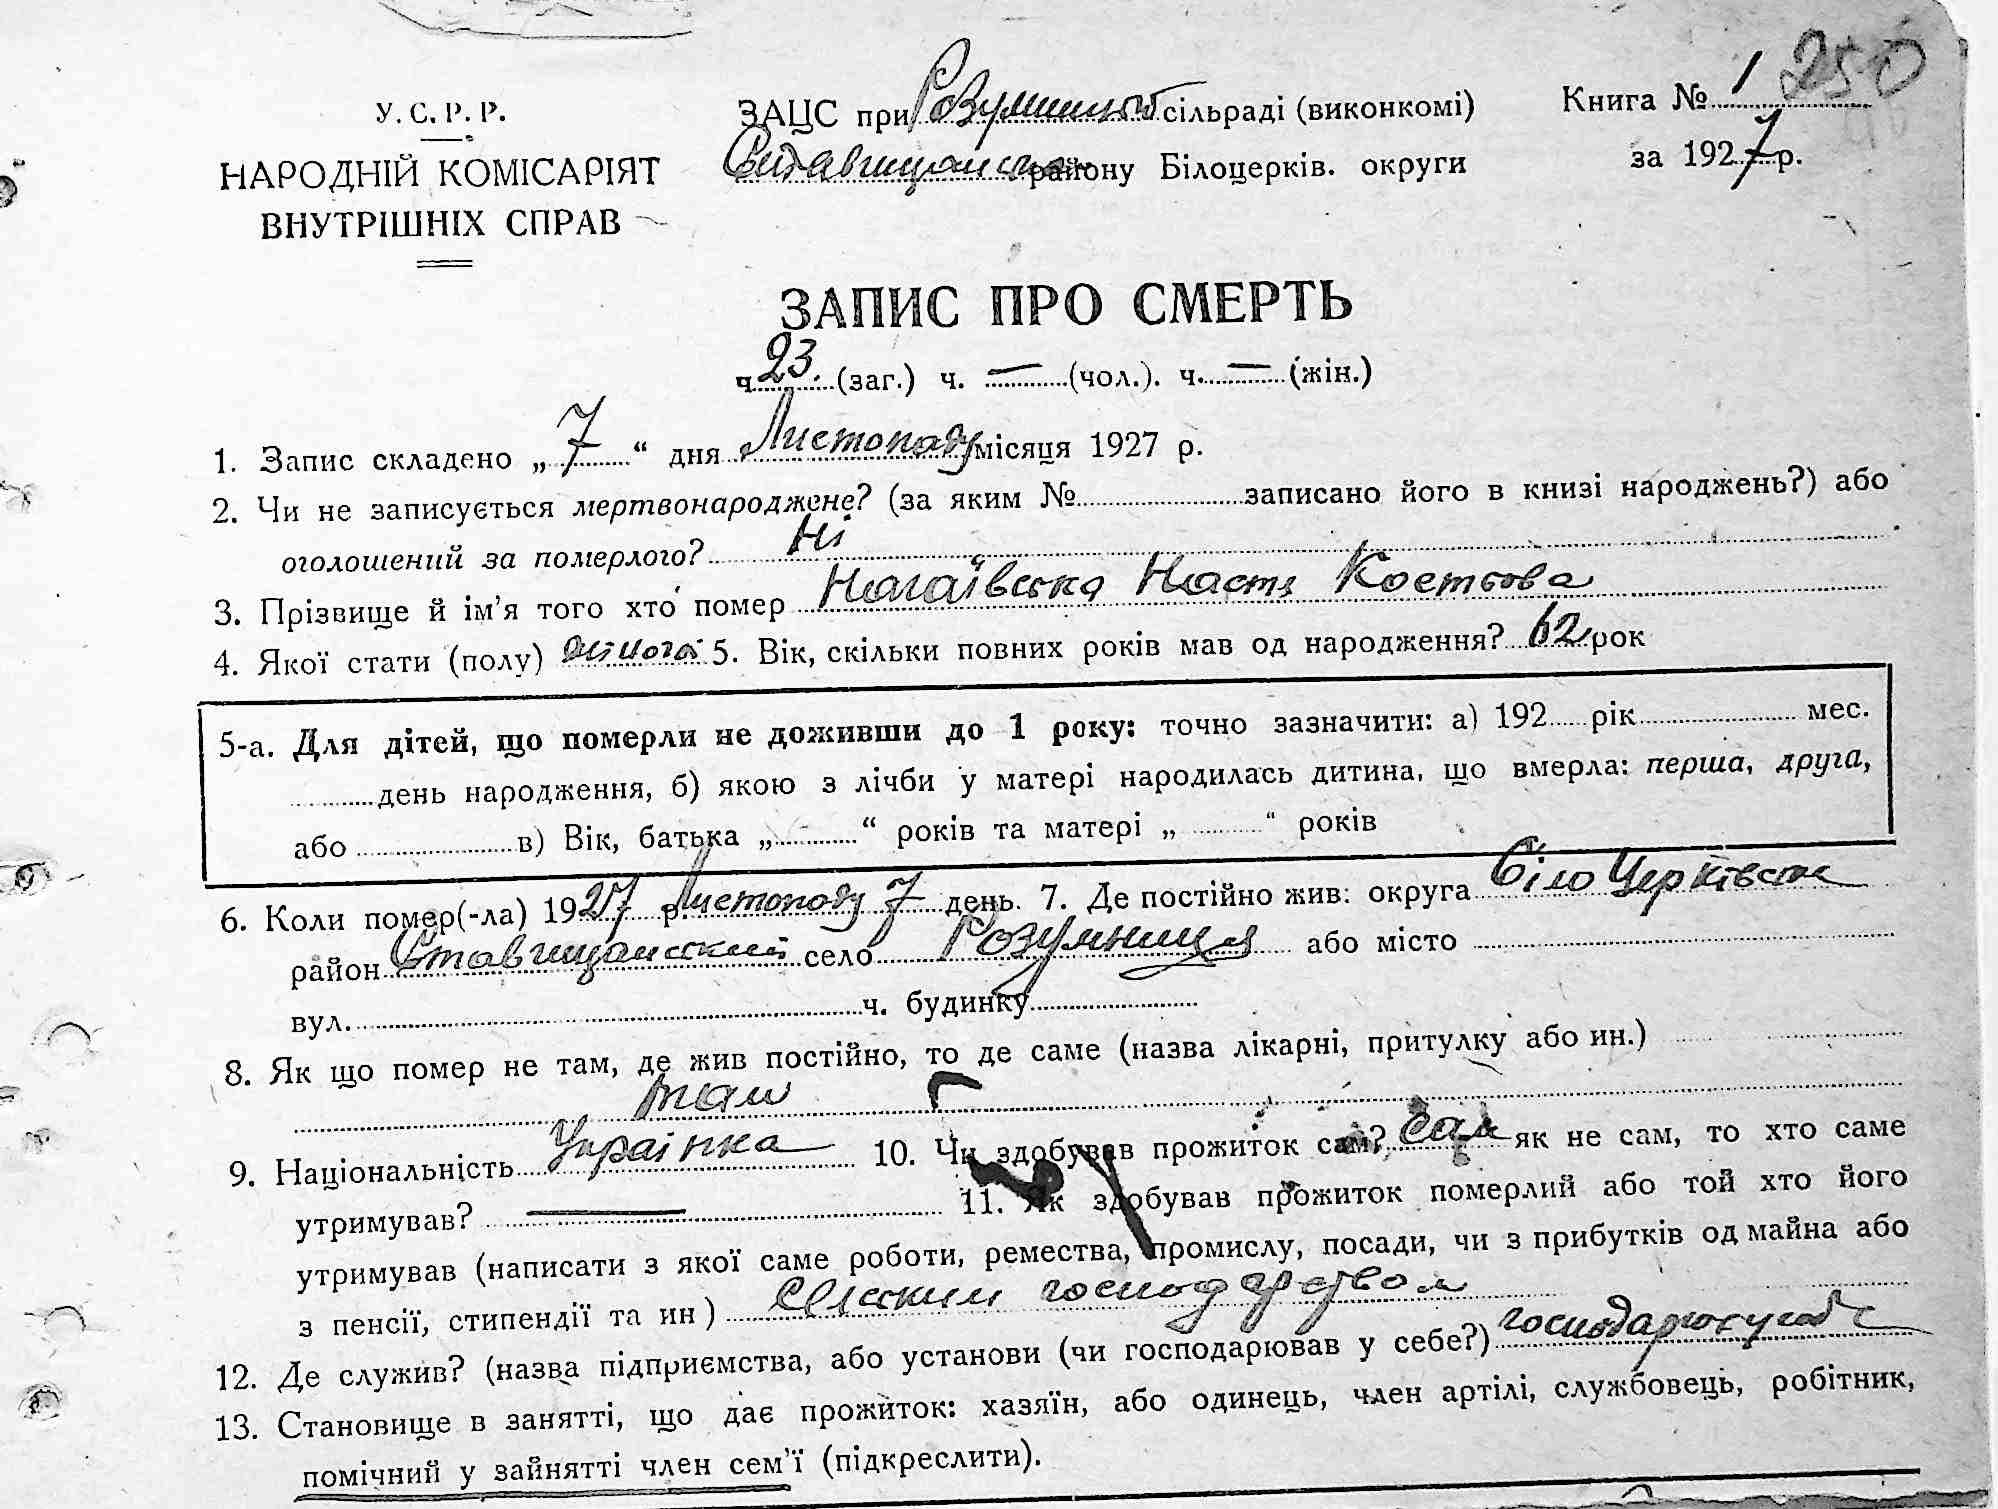 У. С. Р. Р.
НАРОДНІЙ КОМІСАРІЯТ
ВНУТРІШНІХ СПРАВ
ЗАЦС при Розумницькій сільраді (виконкомі)
Ставищанськ району Білоцерків. округи
Книга № 1 250
за 1927 р.
ЗАПИС ПРО СМЕРТЬ
ч. 23. (заг.) ч. — (чол.). ч. — (жін.)
1. Запис складено „ 7 “ дня Листопаду місяця 1927 р.
2. Чи не записується мертвонароджене? (за яким № записано його в книзі народжень?) або
оголошений за померлого? Ні
3. Прізвище й ім’я того хто помер Нагаївська Настя Костьова
4. Якої стати (полу) жіночої 5. Вік, скільки повних років мав од народження? 62 рок
5-а. Для дітей, що померли не доживши до 1 року: точно зазначити: а) 192 рік мес.
день народження, б) якою з лічби у матері народилась дитина, що вмерла: перша, друга,
або в) Вік, батька „ “ років та матері „ “ років
6. Коли помер(-ла) 1927 р. Листопаду 7 день. 7. Де постійно жив: округа Біло Церківськ
район Ставищанський село Розумниця або місто
вул. ч. будинку
8. Як що помер не там, де жив постійно, то де саме (назва лікарні, притулку або ин.)
там
9. Національність Українка 10. Чи здобував прожиток сам? сам як не сам, то хто саме
утримував? — 11. Як здобував прожиток померлий або той хто його
утримував (написати з якої саме роботи, ремества, промислу, посади, чи з прибутків од майна або
з пенсії, стипендії та ин) сільським господарством
12. Де служив? (назва підприємства, або установи (чи господарював у себе?)
13. Становище в занятті, що дає прожиток: хазяїн, або одинець, член артілі, службовець, робітник,
помічний у зайнятті член сем’ї (підкреслити).